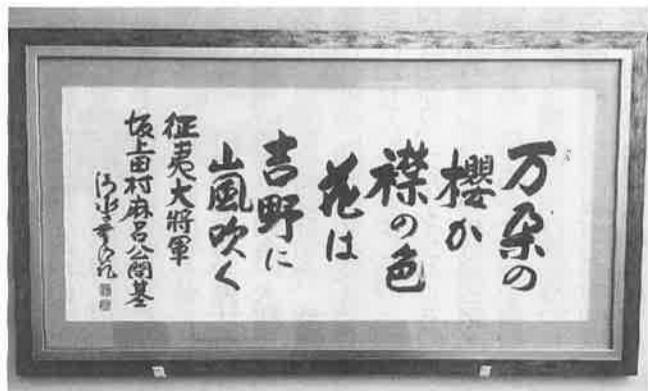 万朶の
櫻か
襟の色
花は
吉野に
嵐吹く
征夷大将軍
坂上田村麻呂公開基
清水寺